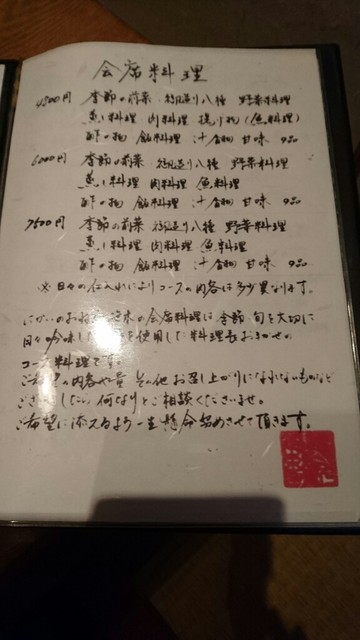 会席料理
4500円 季節の前菜 お造り八種 野菜料理
蒸し料理 肉料理 揚げ物(魚料理)
酢の物 飯料理 汁 香物 甘味 9品
6000円 季節の前菜 お造り八種 野菜料理
蒸し料理 肉料理 魚料理
酢の物 飯料理 汁 香物 甘味 9品
7500円 季節の前菜 お造り八種 野菜料理
蒸し料理 肉料理 魚料理
酢の物 飯料理 汁 香物 甘味 9品
※日々の仕入れによりコースの内容は多少異なります。
の会席料理は季節、旬を大切に
日々吟味した を使用した料理長おまかせの
コース料理です。
の内容や量 その他お召し上がりになれないものなど
ございましたら何なりとご相談くださいませ。
ご希望に添えるよう一生懸命努めさせて頂きます。